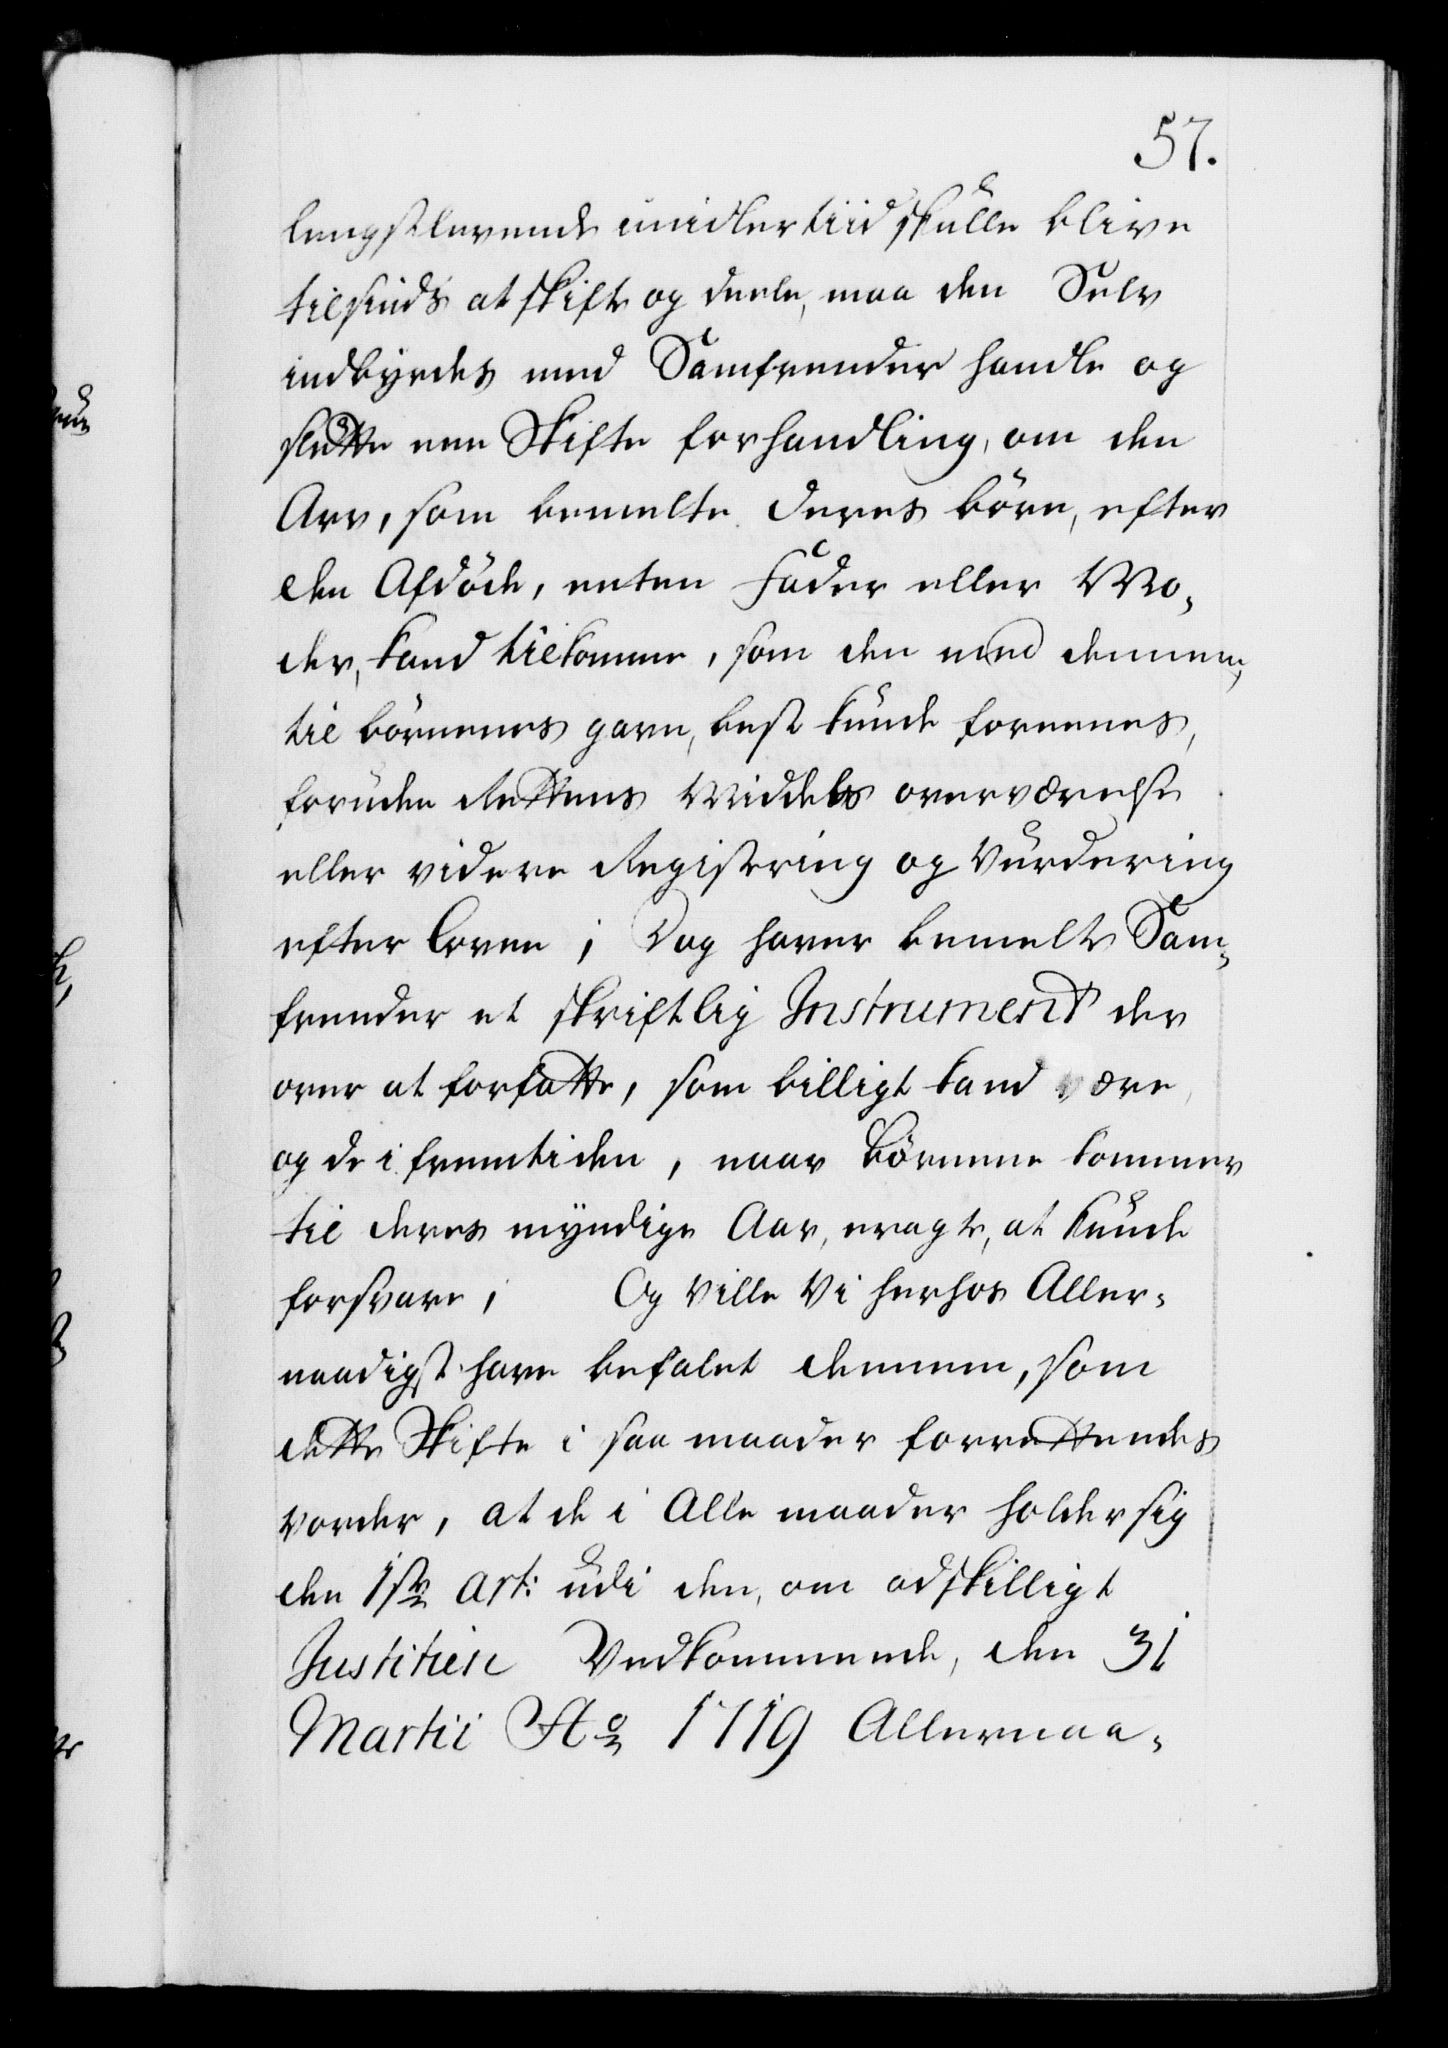 57.
lengstlevende imidlertiid skulle blive
tilsinds at skifte og deele, maa den Selv
indbyrdes med Samfrender handle og
slutte een Skifte forhandling, om den
Arv, som bemelte deres börn, efter
den Afdöde, enten Fader eller Mo-
der, kand tilkomme, som den med dennem,
til börnenes gavn, best kunde foreenes,
foruden Rettens Middels overværelse
eller videre Registering og Vurdering
efter Loven; Dog haver bemelte Sam-
frender et skriftlig Instrument der
over at forfatte, som billigt kand være,
og de i fremtiden, naar Börnene kommer
til deres myndige Aar, eragte, at kunde
forsvare; Og Ville Vi herhos Aller-
naadigst have befalet dennem, som
dette Skifte i saa maader forrettendes
vorder, at de i Alle maader holder sig
den 1ste Art: udi den, om adskilligt
Justitien Vedkommende, den 31
Martii Ao 1719 Allernaa-